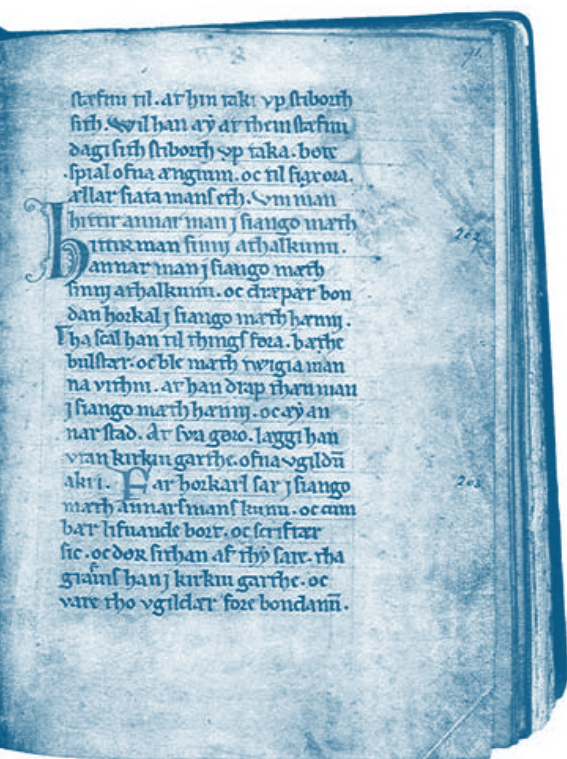 stæfnu til. at hin taki vp stiborth
sith. Wil han æy at them stæfnu
daghi sith stiborth vp taka. bøte
spial ofna ængium. oc til siax ora.
ællar fiata mans eth. Vm man
hittir annar man j siango mæth
Hittir man sinni athalkunu.
annar man j siango mæth
sinni athalkunu. oc dræpær bon
dan horkal j siango mæth hænni.
Tha scal han til things føra. bæthe
bulstær. oc ble mæth twigia man
na vithni. at han drap than man
j siango mæth hænni. oc æy an
nar stad. Ær sva gøro. læggi han
vtan kirkiu garthe. ofna vgildū
akri. Far horkarl sar j siango
mæth annars mans kunu. oc cum
bær lifuande bort. oc scriftær
sic. oc dør sithan af thy sare. tha
grafins han j kirkiu garthe. oc
vare tho vgildær fore bondanū.
71
202
203